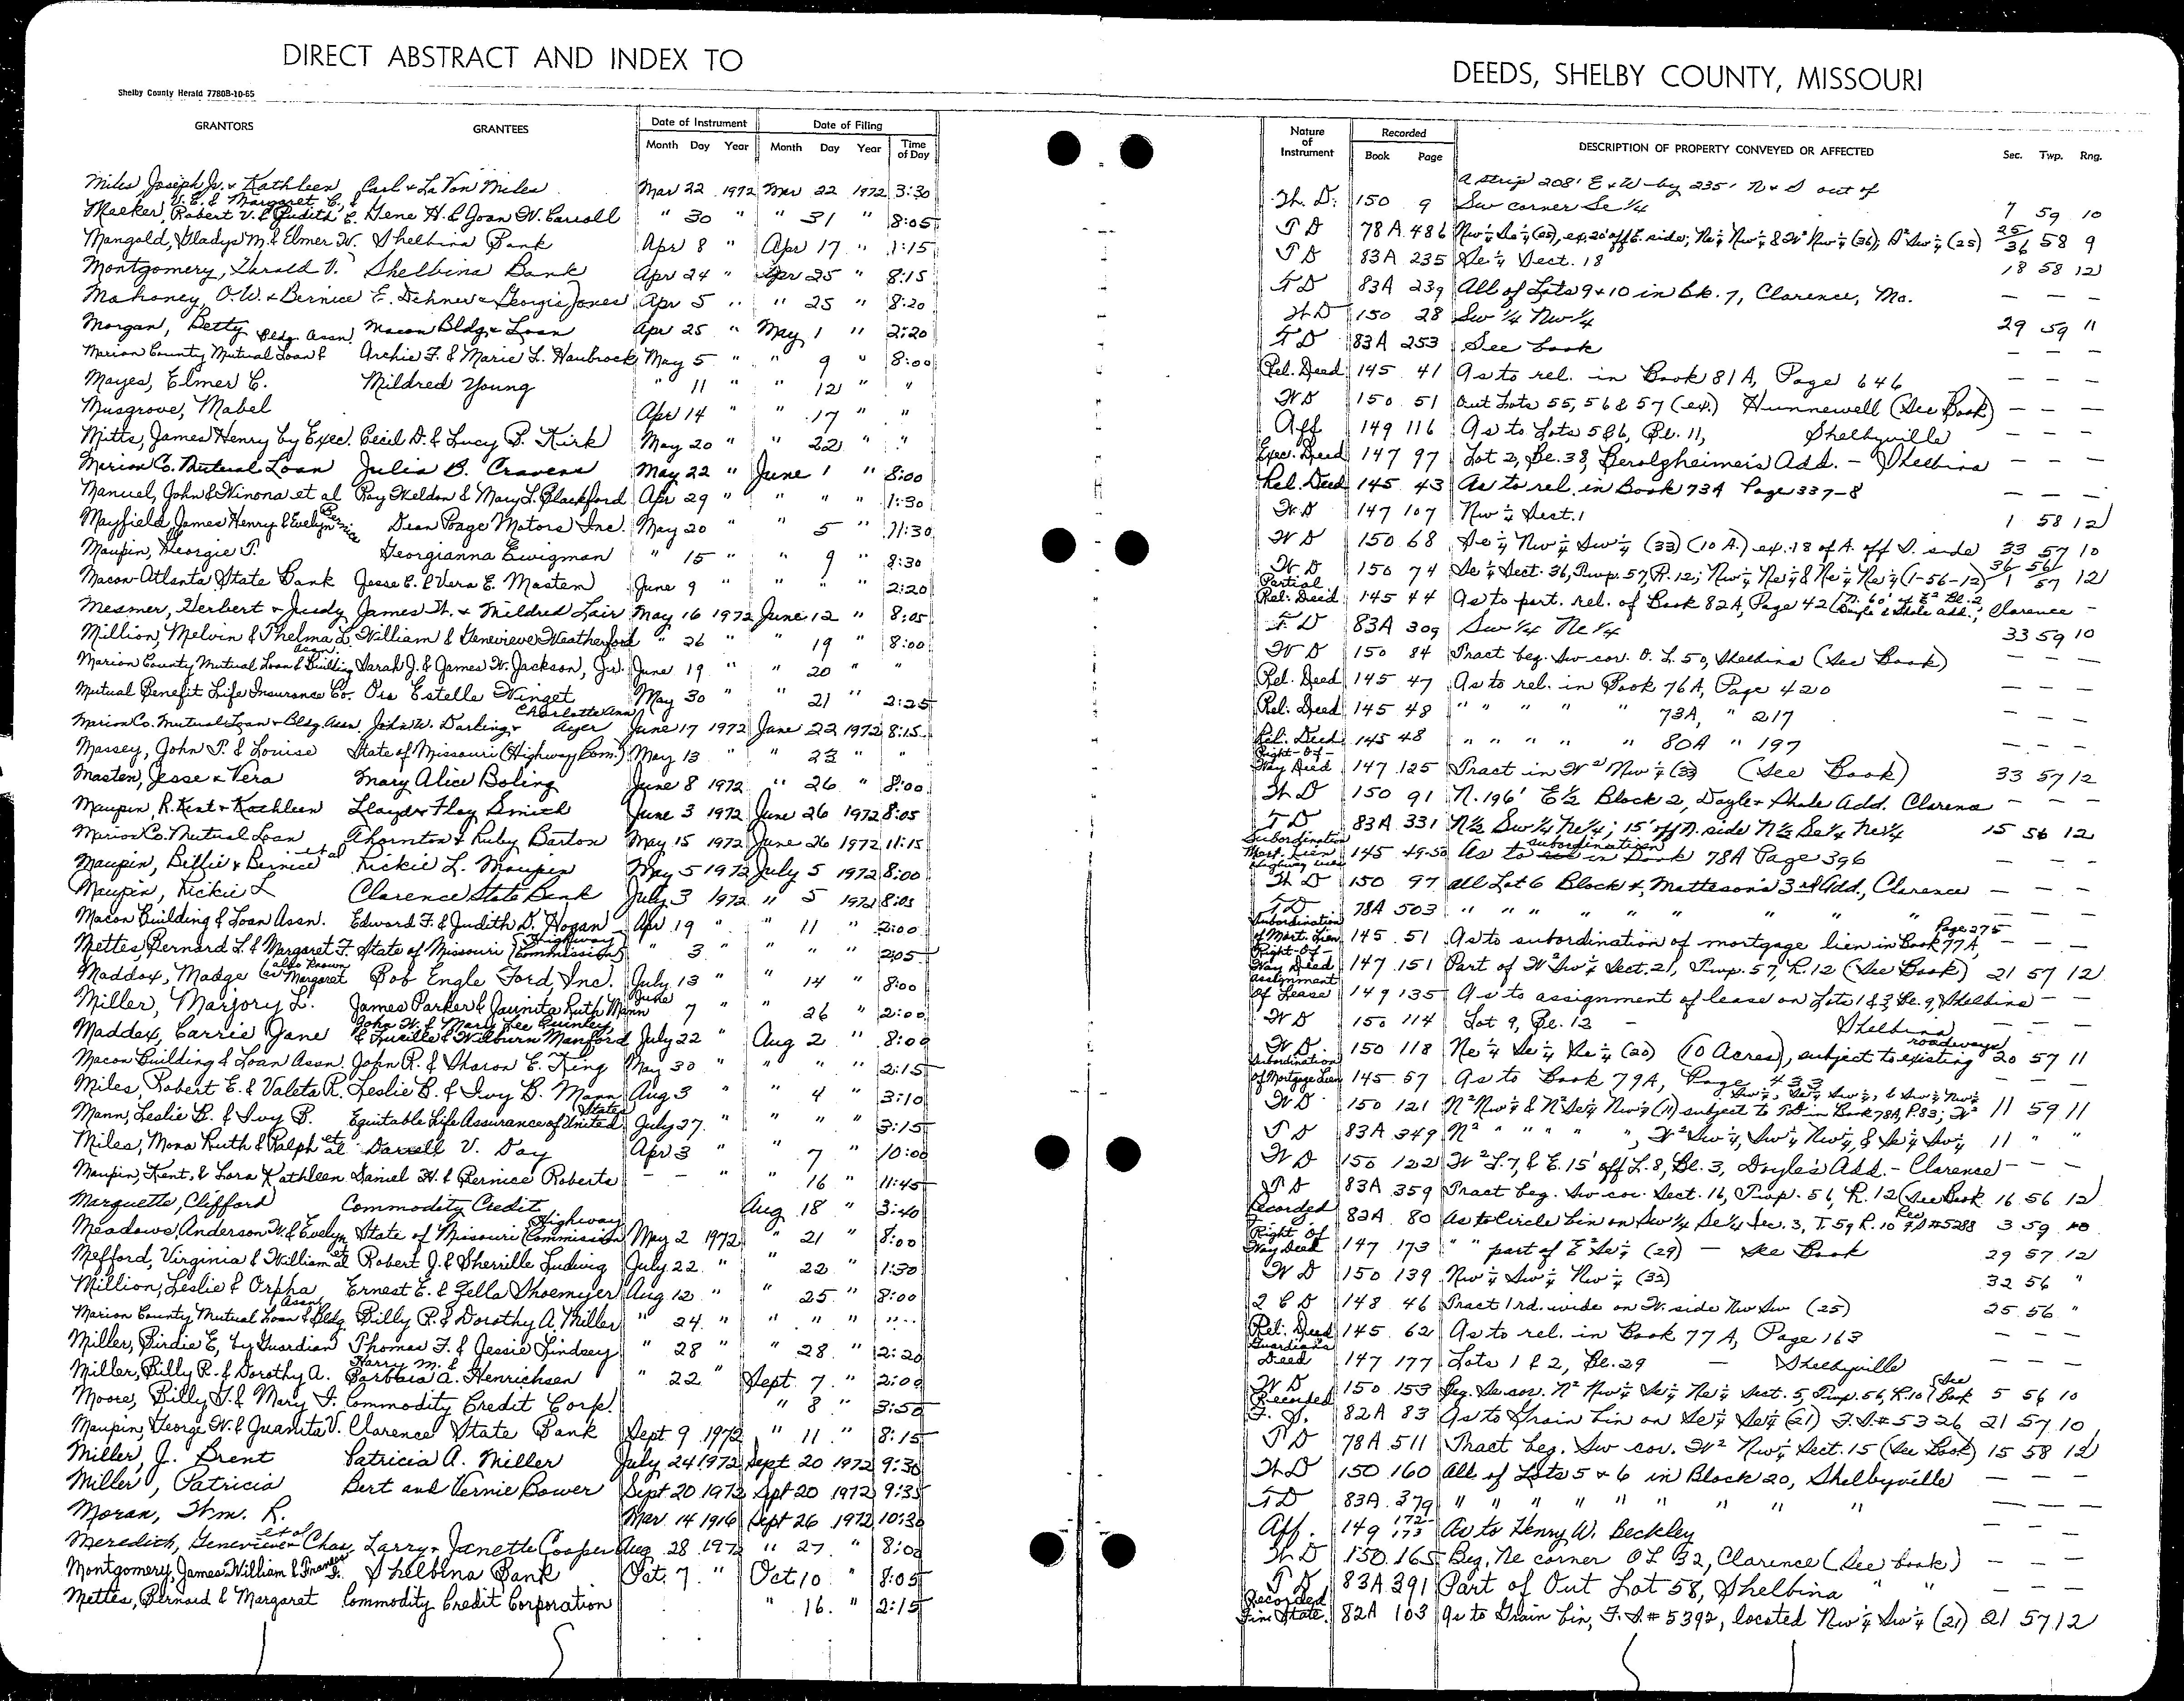 DIRECT ABSTRACT AND INDEX TO
DEEDS, SHELBY COUNTY, MISSOURI
Shelby County Herald 7780B-10-65
GRANTORS GRANTEES Date of Instrument Month Day Year Date of Filing Month Day Year Time of Day
Miles Joseph Jr. & Kathleen Carl & La Von Miles Mar 22 1972 Mar 22 1972 3:30
V. E. & Margaret C., &
Maeker, Robert V. & Judith E. Gene H. & Joan W. Carroll " 30 " " 31 " 8:05
Mangold, Gladys M. & Elmer W. Shelbina Bank Apr 8 " Apr 17 " 1:15
Montgomery, Harold V. Shelbina Bank Apr 24 " Apr 25 " 8:15
Mahoney, O.W. & Bernice E. Dehner & Georgia Jones Apr 5 " " 25 " 8:20
Morgan, Betty Macon Bldg & Loan Apr 25 " May 1 " 2:20
Bldg. Assn.
Marion County Mutual Loan & Archie F. & Marie L. Haubrock May 5 " " 9 " 8:00
Mayes, Elmer C. Mildred Young " 11 " " 12 " "
Musgrove, Mabel Apr 14 " " 17 " "
Mitts, James Henry by Exec. Cecil D. & Lucy B. Kirk May 20 " " 22 " "
Marion Co. Mutual Loan Julia B. Cravens May 22 " June 1 " 8:00
Manuel, John & Winona et al Roy Weldon & Mary L. Blackford Apr 29 " " " " 1:30
Mayfield, James Henry & Evelyn Bernice Dean Poage Motors Inc. May 20 " " 5 " 11:30
Maupin, Georgie T. Georgianna Ewigman " 15 " " 9 " 8:30
Macon-Atlanta State Bank Jesse E. & Vera E. Masten June 9 " " " " 2:20
Mesmer, Herbert & Judy James W. & Mildred Lair May 16 1972 June 12 " 8:05
Million, Melvin & Thelma L. William & Genevieve Weatherford " 26 " " 19 " 8:00
Assn.
Marion County Mutual Loan & Building Sarah J. & James W. Jackson, Jr. June 19 " " 20 " "
Mutual Benefit Life Insurance Co. Ora Estelle Winget May 30 " " 21 " 2:25
Charlotte Ann
Marion Co. Mutual Loan & Bldg. Assn. John W. Darling & Ayer June 17 1972 June 22 1972 8:15
Massey, John P. & Louise State of Missouri (Highway Com.) May 13 " " 23 " "
Masten, Jesse & Vera Mary Alice Boling June 8 1972 " 26 " 8:00
Maupin, R. Kent & Kathleen Lloyd & Floy Smith June 3 1972 June 26 1972 8:05
Marion Co. Mutual Loan Thornton & Ruby Barton May 15 1972 June 26 1972 11:15
Maupin, Billie & Bernice et al Rickie L. Maupin May 5 1972 July 5 1972 8:00
Maupin, Rickie L Clarence State Bank July 3 1972 " 5 1972 8:05
Macon Building & Loan Assn. Edward F. & Judith D. Hogan Apr 19 " " 11 " 2:00
Mettes, Bernard L. & Margaret F. State of Missouri (Highway Commission) " 3 " " " " 2:05
Maddox, Madge (also known as Margaret Bob Engle Ford, Inc. July 13 " " 14 " 8:00
Miller, Marjory L. James Parker & Jaunita Ruth Mann June 7 " " 26 " 2:00
John W. & Mary Lee Quinley,
Maddex, Carrie Jane & Lucille & Wilburn Manford July 22 " Aug 2 " 8:00
Macon Building & Loan Assn. John R. & Sharon E. King May 30 " " " " 2:15
Miles, Robert E. & Valeta R. Leslie B. & Ivy B. Mann Aug 3 " " 4 " 3:10
Mann, Leslie B. & Ivy B. Equitable Life Assurance of United States July 27. " " " " 3:15
Miles, Mona Ruth & Ralph et al Darrell V. Day Apr 3 " " 7 " 10:00
Maupin, Kent, & Lora Kathleen Daniel H. & Bernice Roberts - - " " 16 " 11:45
Marquette, Clifford Commodity Credit Aug 18 " 3:40
Meadows, Anderson W. & Evelyn State of Missouri (Highway Commission May 2 1972 " 21 " 8:00
Mefford, Virginia & William et al Robert J. & Sherrille Ludwig July 22 " " 22 " 1:30
Million, Leslie & Orpha Ernest E. & Zella Shoemyer Aug 12 " " 25 " 8:00
Assn.
Marion County Mutual Loan & Bldg. Billy R. & Dorothy A. Miller " 24. " " " " "
Miller, Birdie E, by Guardian Thomas F. & Jessie Lindsey " 28 " " 28 " 2:20
Harry M. &
Miller, Billy R. & Dorothy A. Barbara A. Henrichsen " 22 " Sept. 7 " 2:00
Moore, Billy G. & Mary F. Commodity Credit Corp. " 8 " 3:50
Maupin, George W. & Juanita V. Clarence State Bank Sept 9 1972 " 11 " 8:15
Miller, J. Brent Patricia A. Miller July 24 1972 Sept 20 1972 9:30
Miller, Patricia Bert and Vernie Bower Sept 20 1972 Sept 20 1972 9:35
Moran, Thm. R. Mar. 14 1916 Sept 26 1972 10:30
Meredith, Genevieve & Chas et al Larry & Janette Cooper Aug 28 1972 " 27 " 8:00
Montgomery, James William & Frances F. Shelbina Bank Oct. 7 " Oct 10 " 8:05
Mettes, Bernard & Margaret Commodity Credit Corporation " 16. " 2:15
Nature of Instrument Recorded Book Page DESCRIPTION OF PROPERTY CONVEYED OR AFFECTED Sec. Twp. Rng.
A strip 208' E & W by 235' N & S out of
W. D. 150 9 Sw corner Se 1/4 7 59 10
T D 78A 486 Nw 1/4 Se 1/4 (25), ex. 20' off E. side; Ne 1/4 Nw 1/4 & W² Nw 1/4 (36); S² Sw 1/4 (25) 25 36 58 9
T D 83A 235 Se 1/4 Sect. 18 18 58 12
T D 83A 239 All of Lots 9 & 10 in Bk. 7, Clarence, Mo. — — —
W D 150 28 Sw 1/4 Nw 1/4 29 59 11
T D 83A 253 See book — — —
Rel. Deed 145 41 As to rel. in Book 81A, Page 646 — — —
W D 150 51 Out Lots 55, 56 & 57 (ex.) Hunnewell (See Book) — — —
Aff 149 116 As to Lots 5 & 6, Bl. 11, Shelbyville — — —
Exec. Deed 147 97 Lot 2, Bl. 38, Berolzheimer's Add. - Shelbina — — —
Rel. Deed 145 43 As to rel. in Book 73A Page 337-8 — — —
W D 147 107 Nw 1/4 Sect. 1 1 58 12
W D 150 68 Se 1/4 Nw 1/4 Sw 1/4 (33) (10 A.) ex. 18 of A. off S. side 33 57 10
W D 150 74 Se 1/4 Sect. 36, Twp. 57, R. 12; Nw 1/4 Ne 1/4 & Ne 1/4 Ne 1/4 (1-56-12) 36 1 56 57 12
Partial Rel. Deed 145 44 As to part. rel. of Book 82A, Page 42 (N. 60' of E² Bl. 2 Doyle & Shale Add., Clarence -
T D 83A 309 Sw 1/4 Ne 1/4 33 59 10
W D 150 84 Tract beg. Sw cor. O. L. 50, Shelbina (See Book) — — —
Rel. Deed 145 47 As to rel. in Book 76A, Page 420 — — —
Rel. Deed 145 48 " " " " " 73A, " 217 — — —
Rel. Deed 145 48 " " " " " 80A " 197 — — —
Right-Of-Way Deed 147 125 Tract in W² Nw 1/4 (33) (See Book) 33 57 12
W D 150 91 N. 196' E 1/2 Block 2, Doyle & Shale Add. Clarence — — —
T D 83A 331 N 1/2 Sw 1/4 Ne 1/4; 15' off N. side N 1/2 Se 1/4 Ne 1/4 15 56 12
Subordination Mort. Lien Highway Lien 145 49-50 As to subordination in Book 78A Page 396 — — —
W D 150 97 all Lot 6 Block 4, Matteson's 3rd Add, Clarence — — —
T D 78A 503 " " " " " " " " — — —
Subordination of Mort. Lien 145 51 As to subordination of mortgage lien in Book 77A, Page 275 — — —
Right-Of-Way Deed 147 151 Part of W² Sw 1/4 Sect. 21, Twp. 57, R. 12 (See Book) 21 57 12
Assignment of Lease 149 135 As to assignment of lease on Lots 1 & 3, Bl. 9, Shelbina — —
W D 150 114 Lot 9, Bl. 12 - Shelbina — — —
W D 150 118 Ne 1/4 Se 1/4 Se 1/4 (20) (10 Acres), subject to existing roadways 20 57 11
Subordination of Mortgage Lien 145 57 As to Book 79A, Page 433 — — —
W D 150 121 N² Nw 1/4 & N² Se 1/4 Nw 1/4 (11) subject to TD in Book 78A, P. 83; W² Sw 1/4, Se 1/4 Sw 1/4, & Sw 1/4 Nw 1/4 11 59 11
T D 83A 349 N² " " " " " , W² Sw 1/4, Sw 1/4 Nw 1/4, & Se 1/4 Sw 1/4 11 " "
W D 150 122 W² L. 7, & E. 15' off L. 8, Bl. 3, Doyle's Add. - Clarence — — —
T D 83A 359 Tract beg. Sw cor. Sect. 16, Twp. 56, R. 12 (See Book 16 56 12
Recorded 82A 80 As to Circle bin on Sw 1/4 Se 1/4 Sec. 3, T. 59 R. 10 Rec F.S. #5288 3 59 10
Right Of Way Deed 147 173 " " part of E² Se 1/4 (29) - See Book 29 57 12
W D 150 139 Nw 1/4 Sw 1/4 Nw 1/4 (32) 32 56 "
Q C D 148 46 Tract 1 rd. wide on W. side Nw Sw (25) 25 56 "
Rel. Deed 145 62 As to rel. in Book 77A, Page 163 — — —
Guardian's Deed 147 177 Lots 1 & 2, Bl. 29 - Shelbyville — — —
W D 150 153 Beg. Se cor. N² Nw 1/4 Se 1/4 Ne 1/4 Sect. 5, Twp. 56, R. 10 (See Book 5 56 10
Recorded F. S. 82A 83 As to Grain bin on Se 1/4 Se 1/4 (21) F.S. #5326 21 57 10
T D 78A 511 Tract beg. Sw cor. W² Nw 1/4 Sect. 15 (See Book) 15 58 12
W D 150 160 All of Lots 5 & 6 in Block 20, Shelbyville — — —
T D 83A 379 " " " " " " " " — — —
Aff. 149 172-173 As to Henry W. Beckley — — —
W D 150 165 Beg. Ne corner OL 32, Clarence (See book) — — —
T D 83A 391 Part of Out Lot 58, Shelbina " " — — —
Recorded Fin. State. 82A 103 As to Grain bin, F.S. #5392, located Nw 1/4 Sw 1/4 (21) 21 57 12